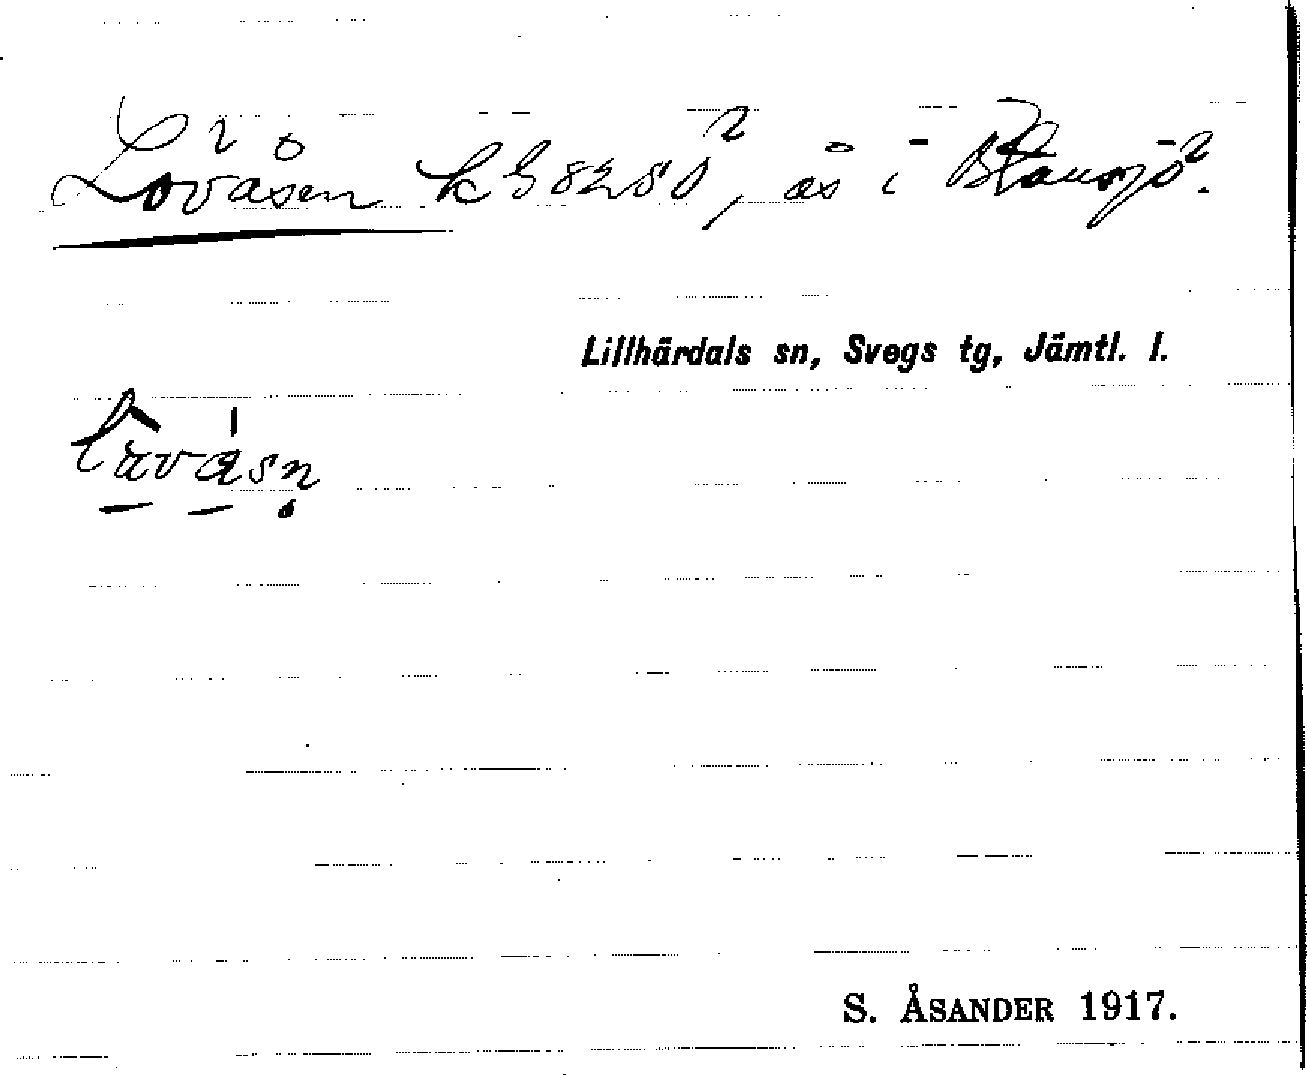 Lövåsen k G 8280, ås i
Lillhärdals sn, Svegs tg, Jämtl. l.
lävåsn
S. ÅSANDER 1917.